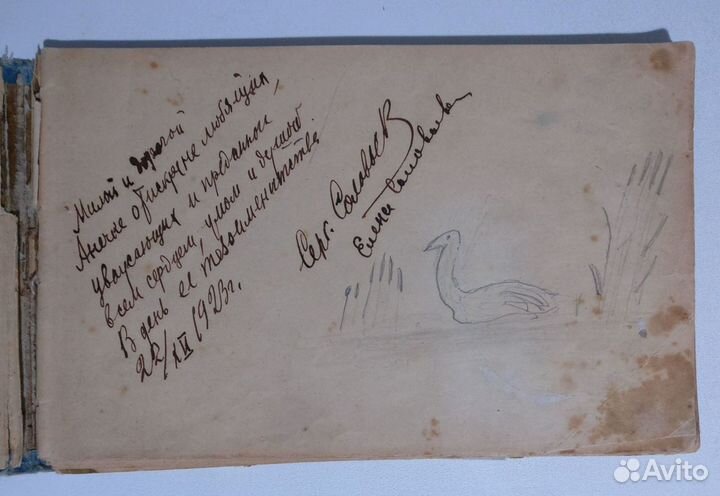 Милой и дорогой
Анечке от искренне любящих,
уважающих и преданных
всем сердцем, умом и душой
В день ее тезоименитства.
22/XII 1923 г.
Серг. Соловьев
Елена Соловьева
Avito